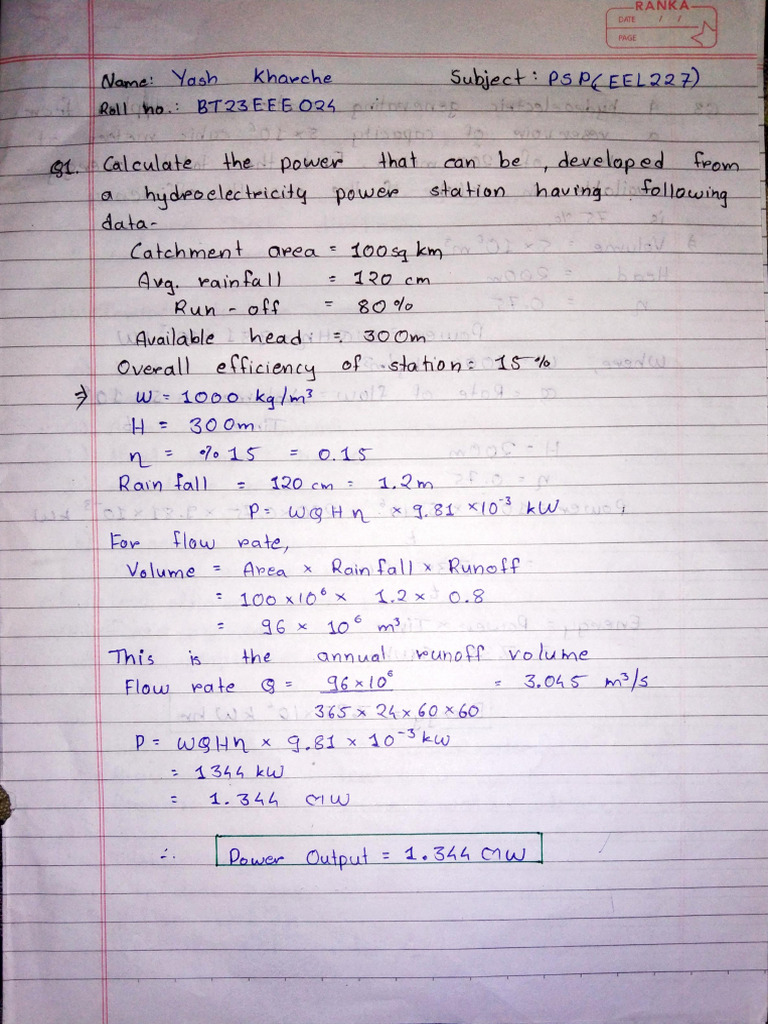 RANKA
DATE / /
PAGE
Name: Yash Kharche Subject: PSP(EEL227)
Roll no.: BT23EEE024
Q1. Calculate the power that can be, developed from
a hydroelectricity power station having following
data-
Catchment area = 100sq km
Avg. rainfall = 120 cm
Run-off = 80%
Available head = 300m
Overall efficiency of station= 15%
⇒ W = 1000 kg/m³
H = 300m
η = %15 = 0.15
Rain fall = 120 cm = 1.2m
P= WQHη × 9.81 ×10⁻³ kW
For flow rate,
Volume = Area × Rainfall × Runoff
= 100×10⁶ × 1.2 × 0.8
= 96 × 10⁶ m³
This is the annual runoff volume
Flow rate Q = 96×10⁶ = 3.045 m³/s
365×24×60×60
P= WQHη × 9.81 × 10⁻³ kW
= 1344 kW
= 1.344 MW
∴ Power Output = 1.344 MW